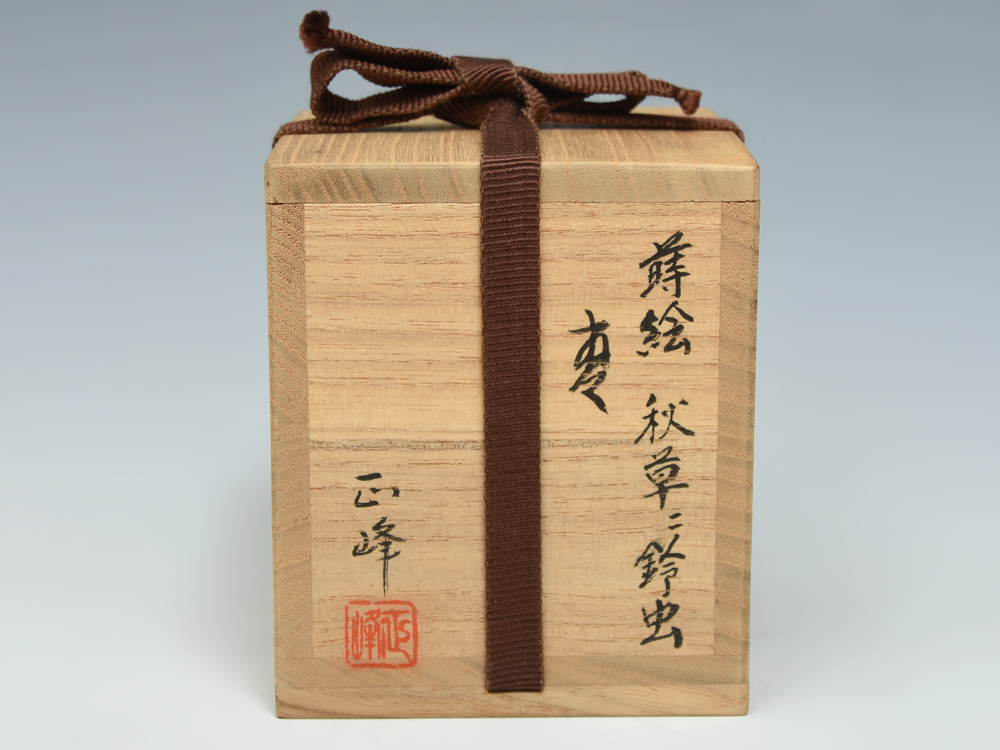 蒔絵 秋草ニ鈴虫
棗
正峰
正峰